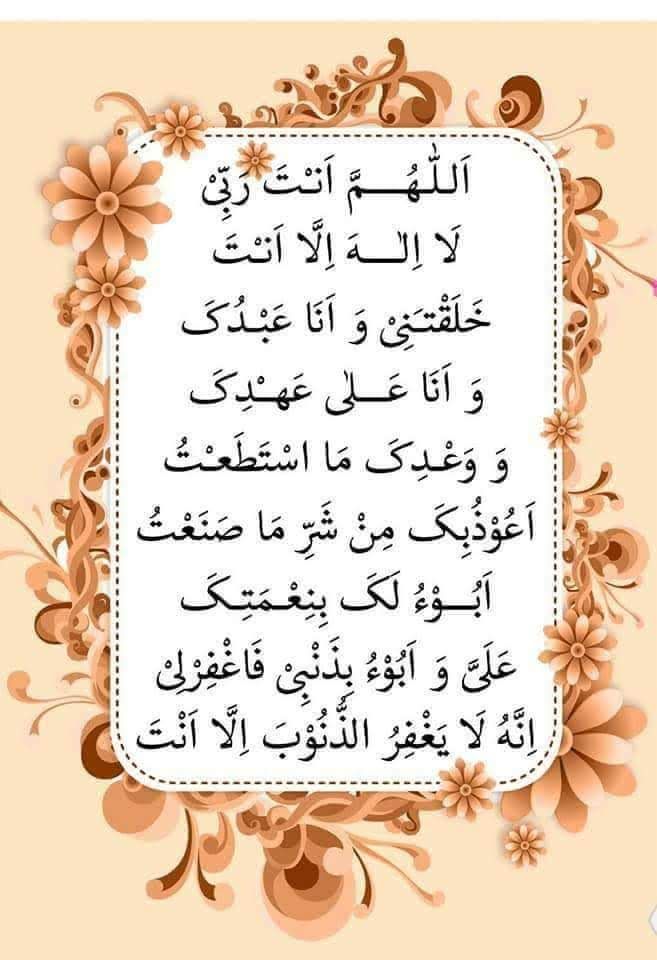 اَللّٰهُمَّ اَنْتَ رَبِّیْ
لَا اِلٰهَ اِلَّا اَنْتَ
خَلَقْتَنِیْ وَ اَنَا عَبْدُکَ
وَ اَنَا عَلٰی عَهْدِکَ
وَ وَعْدِکَ مَا اسْتَطَعْتُ
اَعُوْذُبِکَ مِنْ شَرِّ مَا صَنَعْتُ
اَبُوْءُ لَکَ بِنِعْمَتِکَ
عَلَیَّ وَ اَبُوْءُ بِذَنْبِیْ فَاغْفِرْلِیْ
اِنَّهُ لَا یَغْفِرُ الذُّنُوْبَ اِلَّا اَنْتَ